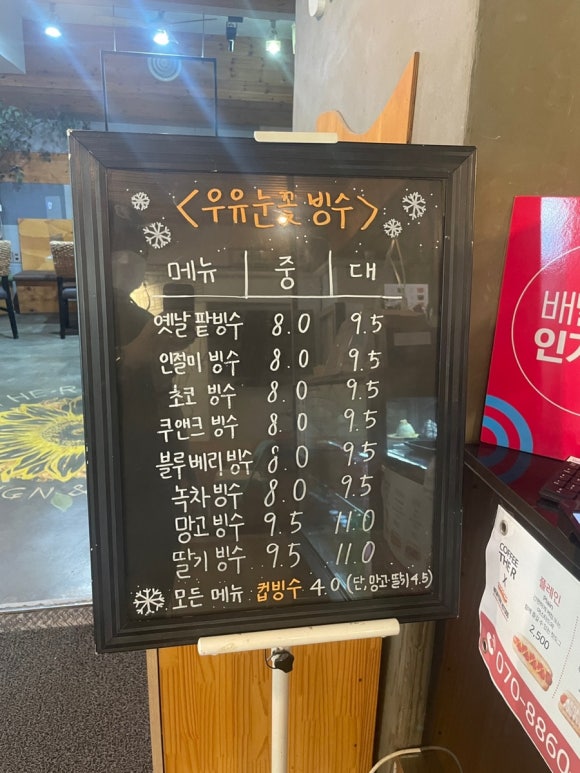 <우유눈꽃빙수>
메뉴 중 대
옛날 팥빙수 8.0 9.5
인절미 빙수 8.0 9.5
초코 빙수 8.0 9.5
쿠앤크 빙수 8.0 9.5
블루베리 빙수 8.0 9.5
녹차 빙수 8.0 9.5
망고 빙수 9.5 11.0
딸기 빙수 9.5 11.0
모든 메뉴 컵빙수 4.0 (단, 망고·딸기 4.5)
배
인기
COFFEE
THE R
플레인
2,500
070-8860